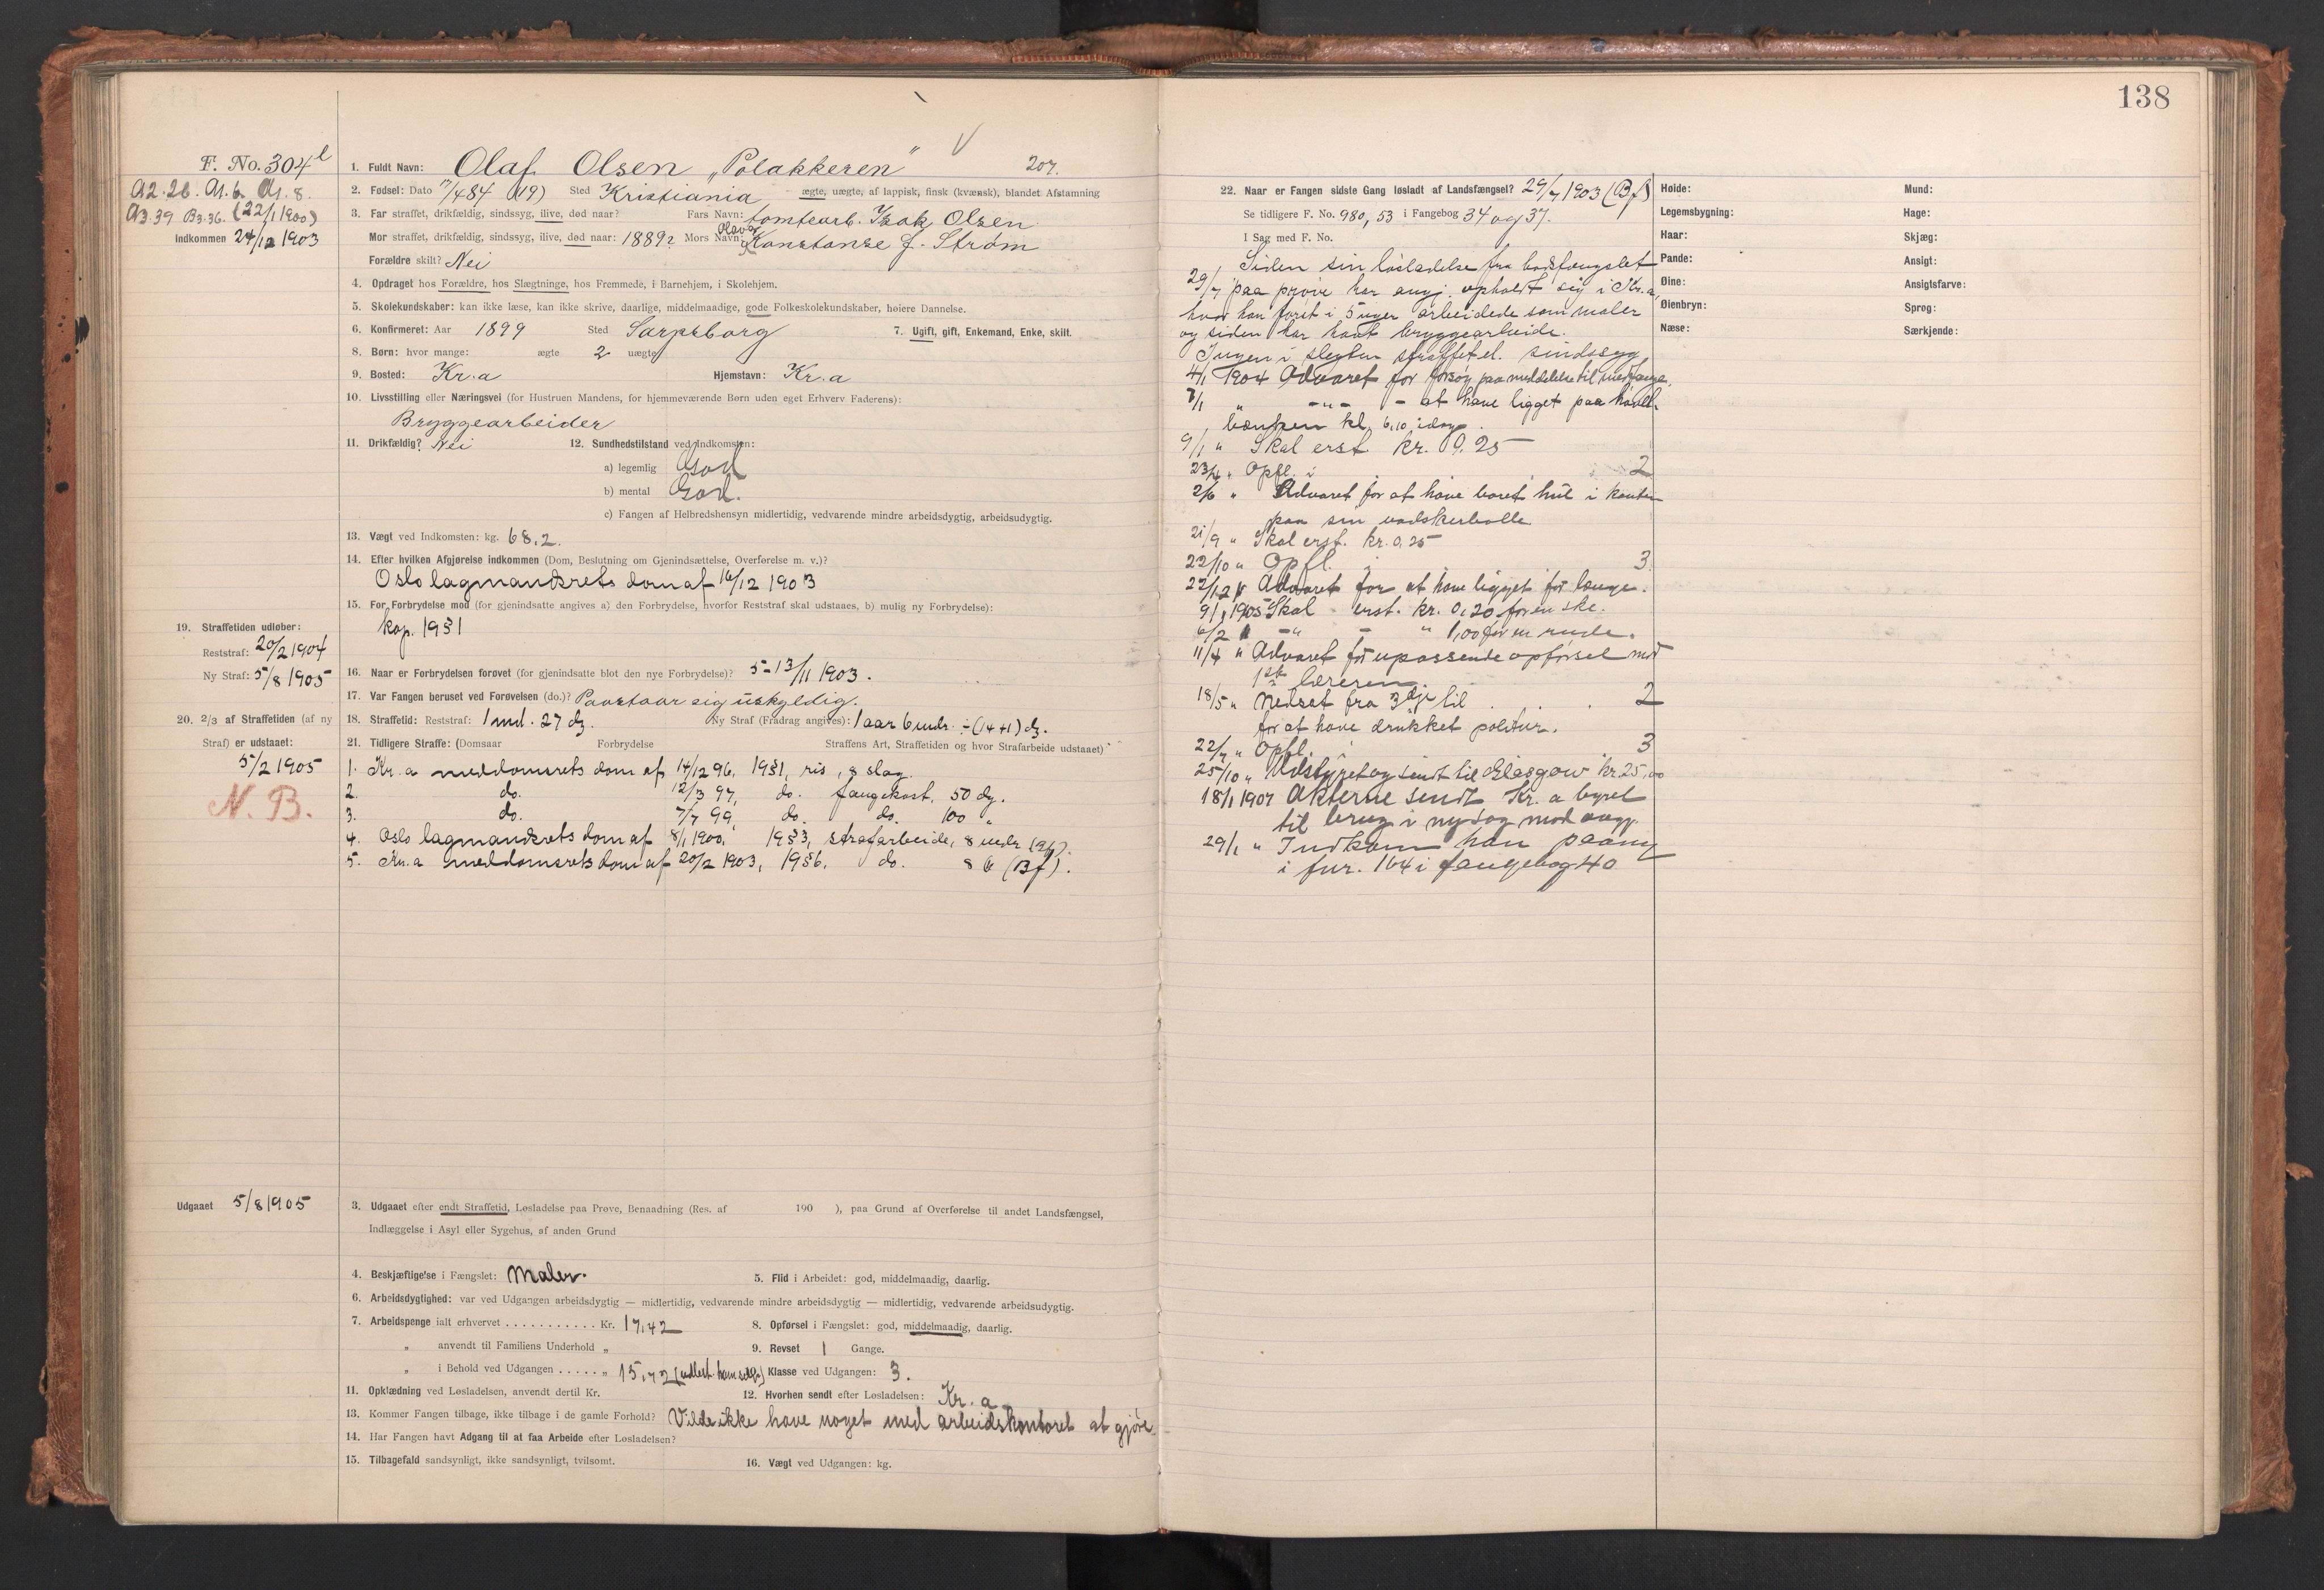 138
F. No. 304
A2.26. A1.6. A1.8.
A3.39 B3.36. (22/1 1900)
Indkommen 24/12 1903
1. Fuldt Navn: Olaf Olsen „Polakkeren" 207.
2. Fødsel: Dato 7/4 84 (19) Sted Kristiania ægte, uægte, af lappisk, finsk (kvænsk), blandet Afstamning
3. Far straffet, drikfældig, sindssyg, ilive, død naar? Fars Navn: tomtearb. Isak Olsen
Mor straffet, drikfældig, sindssyg, ilive, død naar: 1889? Mors Navn: Olava Konstanse J. Strøm
Forældre skilt? Nei
4. Opdraget hos Forældre, hos Slægtninge, hos Fremmede, i Barnehjem, i Skolehjem.
5. Skolekundskaber: kan ikke læse, kan ikke skrive, daarlige, middelmaadige, gode Folkeskolekundskaber, høiere Dannelse.
6. Konfirmeret: Aar 1899 Sted Sarpsborg 7. Ugift, gift, Enkemand, Enke, skilt.
8. Børn: hvor mange: ægte 2 uægte
9. Bosted: Kr.a Hjemstavn: Kr.a
10. Livsstilling eller Næringsvei (for Hustruen Mandens, for hjemmeværende Børn uden eget Erhverv Faderens):
Bryggearbeider
11. Drikfældig? Nei 12. Sundhedstilstand ved Indkomsten:
a) legemlig God
b) mental God.
c) Fangen af Helbredshensyn midlertidig, vedvarende mindre arbeidsdygtig, arbeidsudygtig.
13. Vægt ved Indkomsten: kg. 68,2.
14. Efter hvilken Afgjørelse indkommen (Dom, Beslutning om Gjenindsættelse, Overførelse m. v.)?
Oslo lagmandsrets dom af 16/12 1903
15. For Forbrydelse mod (for gjenindsatte angives a) den Forbrydelse, hvorfor Reststraf skal udstaaes, b) mulig ny Forbrydelse):
kap. 19 § 1
19. Straffetiden udløber:
Reststraf: 20/2 1904
Ny Straf: 5/8 1905
16. Naar er Forbrydelsen forøvet (for gjenindsatte blot den nye Forbrydelse)? 5-13/11 1903.
17. Var Fangen beruset ved Forøvelsen (do.)? Paastaar sig uskyldig.
20. 2/3 af Straffetiden (af ny
Straf) er udstaaet:
5/2 1905
N. B.
18. Straffetid: Reststraf: 1 md. 27 dg. Ny Straf (Fradrag angives): 1 aar 6 mdr. ÷ (14+1) dg.
21. Tidligere Straffe: (Domsaar Forbrydelse Straffens Art, Straffetiden og hvor Strafarbeide udstaaet)
1. Kr.a meddomsrets dom af 14/12 96, 19 § 1, ris, 8 slag.
2. do. 12/3 97, do. fangekost, 50 dg.
3. do. 7/7 99, do. do. 100 „
4. Oslo lagmandsrets dom af 8/1 1900, 19 § 3, strafarbeide, 8 mdr.
5. Kr.a meddomsrets dom af 20/2 1903, 19 § 6, do. 8 (Bf).
Udgaaet 5/8 1905
3. Udgaaet efter endt Straffetid, Løsladelse paa Prøve, Benaadning (Res. af 190 ), paa Grund af Overførelse til andet Landsfængsel,
Indlæggelse i Asyl eller Sygehus, af anden Grund
4. Beskjæftigelse i Fængslet: Maler. 5. Flid i Arbeidet: god, middelmaadig, daarlig.
6. Arbeidsdygtighed: var ved Udgangen arbeidsdygtig — midlertidig, vedvarende mindre arbeidsdygtig — midlertidig, vedvarende arbeidsudygtig.
7. Arbeidspenge ialt erhvervet . . . . . . . . . . . Kr. 17,42 8. Opførsel i Fængslet: god, middelmaadig, daarlig.
„ anvendt til Familiens Underhold „ 9. Revset 1 Gange.
„ i Behold ved Udgangen . . . . . „ 15,42 (udbet. ham selv) Klasse ved Udgangen: 3.
11. Opklædning ved Løsladelsen, anvendt dertil Kr. 12. Hvorhen sendt efter Løsladelsen: Kr. a.
13. Kommer Fangen tilbage, ikke tilbage i de gamle Forhold? Vilde ikke have noget med arbeidskontoret at gjøre
14. Har Fangen havt Adgang til at faa Arbeide efter Løsladelsen?
15. Tilbagefald sandsynligt, ikke sandsynligt, tvilsomt. 16. Vægt ved Udgangen: kg.
22. Naar er Fangen sidste Gang løsladt af Landsfængsel? 29/7 1903 (Bf)
Se tidligere F. No. 980, 53 i Fangebog 34 og 37.
I Sag med F. No.
Siden sin løsladelse fra bodsfængslet
29/7 paa prøve har angj. opholdt sig i Kr.a,
hvor han først i 5 uger arbeidede som maler
og siden har havt bryggearbeide.
Ingen i slegten straffet el. sindssyg
4/1 1904 Advaret for forsøg paa meddelelse til medfange.
7/1 „ -„- - at have ligget paa høvl-
bænken kl. 6,10 idag.
9/1 „ Skal erst. kr. 0.25
23/4 „ Opfl. i 2
2/6 „ Advaret for at have boret hul i kanten
paa sin vadskerbolle
21/9 „ Skal erst. kr. 0.25
22/10 „ Opfl. i 3.
22/12 „ Advaret for at have ligget for længe.
9/1 1905 Skal erst. kr. 0,20 for en ske.
6/2 „ -„ - „ 1,00 for en rude.
11/4 „ Advaret for upassende opførsel mod
1ste læreren.
18/5 „ Nedsat fra 3dje til . . . 2
for at have drukket politur.
22/7 „ Opfl. i 3
25/10 „ Udstyret og sendt til Glasgow kr. 25,00
18/1 1907 Akterne sendt Kr. a byret
til brug i ny sag mod angj.
29/1 „ Indkom han paany
i fnr. 164 i fangebog 40
Høide:
Legemsbygning:
Haar:
Pande:
Øine:
Øienbryn:
Næse:
Mund:
Hage:
Skjæg:
Ansigt:
Ansigtsfarve:
Sprog:
Særkjende: